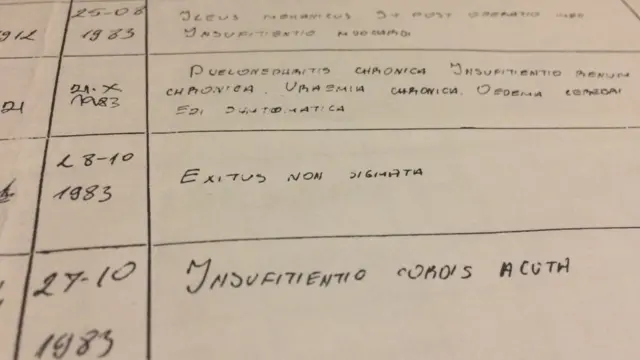 25-08
ILEUS MECHANICUS ST POST OPERATIO
1912
1983
INSUFITIENTIO MYOCARDI
PYELONEPHRITIS CHRONICA INSUFITIENTIO RENUM
21.X
CHRONICA. URAEMIA CHRONICA. OEDEMA CEREBRI
21
1983
28-10
EXITUS NON
1983
27-10
INSUFITIENTIO CORDIS ACUTA
1983